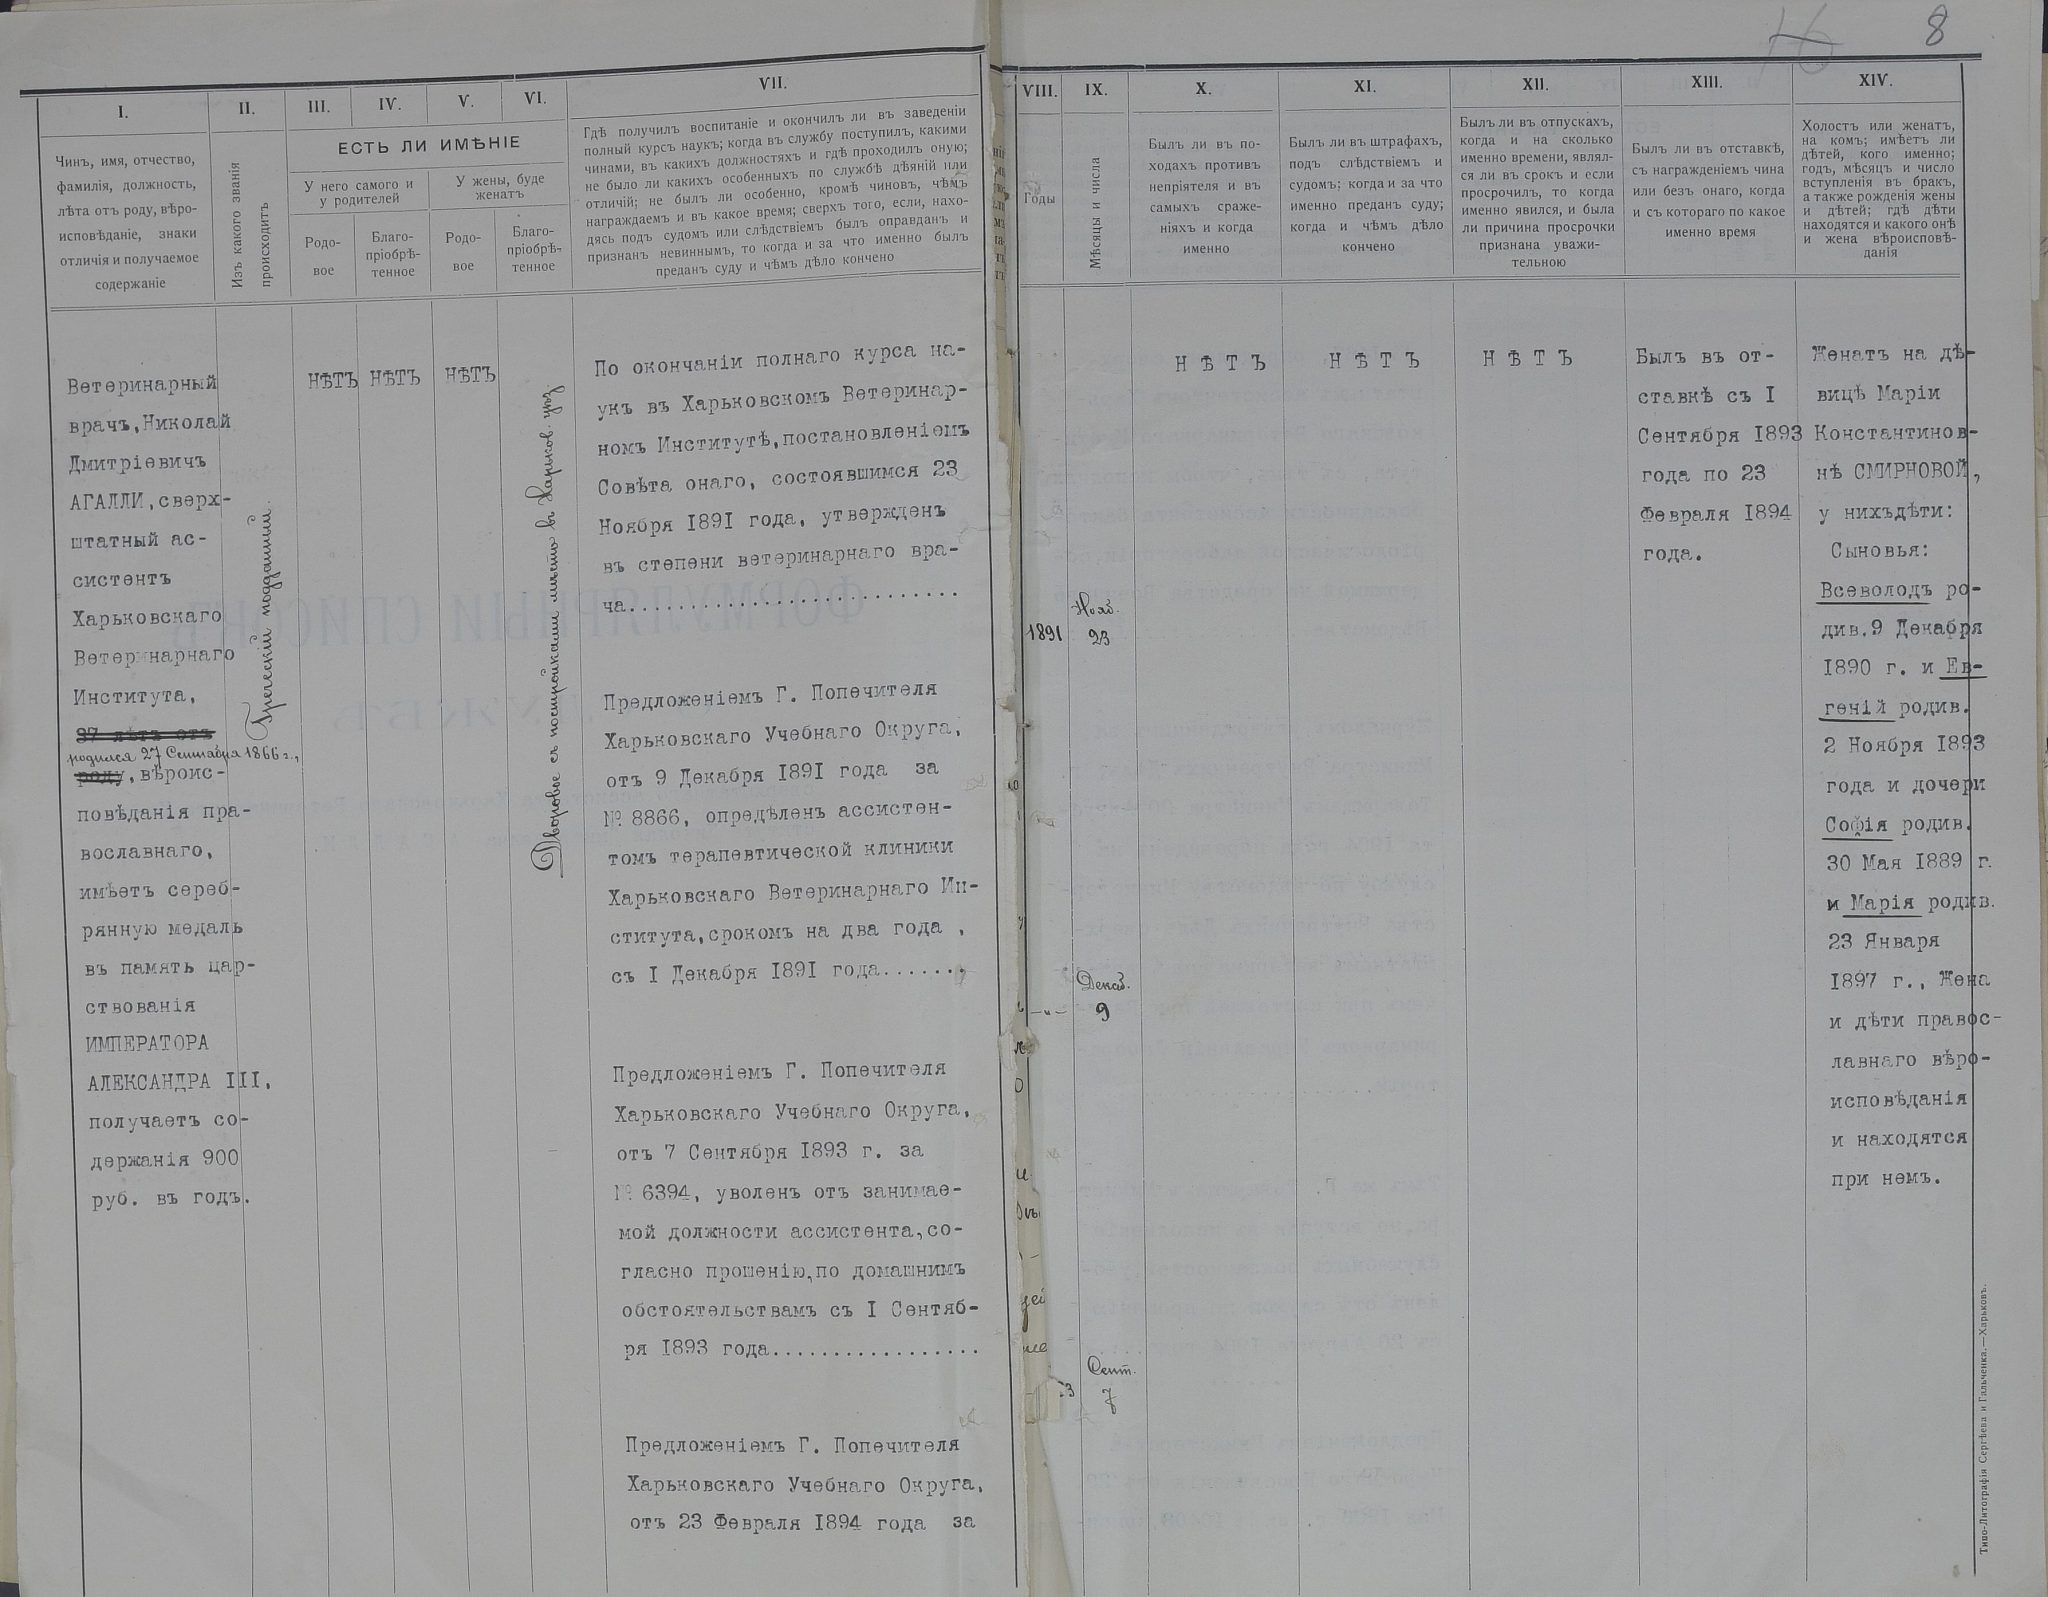 8
I.
II.
III.
IV.
V.
VI.
VII.
VIII.
IX.
X.
XI.
XII.
XIII.
XIV.
Чинъ, имя, отчество,
фамилія, должность,
лѣта отъ роду, вѣро-
исповѣданіе, знаки
отличія и получаемое
содержаніе
Изъ какого званія
происходитъ
ЕСТЬ ЛИ ИМѢНІЕ
У него самого и
у родителей
У жены, буде
женатъ
Родо-
вое
Благо-
пріобрѣ-
тенное
Родо-
вое
Благо-
пріобрѣ-
тенное
Гдѣ получилъ воспитаніе и окончилъ ли въ заведеніи
полный курсъ наукъ; когда въ службу поступилъ, какими
чинами, въ какихъ должностяхъ и гдѣ проходилъ оную;
не было ли какихъ особенныхъ по службѣ дѣяній или
отличій; не былъ ли особенно, кромѣ чиновъ, чѣмъ
награждаемъ и въ какое время; сверхъ того, если, нахо-
дясь подъ судомъ или слѣдствіемъ былъ оправданъ и
признанъ невиннымъ, то когда и за что именно былъ
преданъ суду и чѣмъ дѣло кончено
Годы
Мѣсяцы и числа
Былъ ли въ по-
ходахъ противъ
непріятеля и въ
самыхъ сраже-
ніяхъ и когда
именно
Былъ ли въ штрафахъ,
подъ слѣдствіемъ и
судомъ; когда и за что
именно преданъ суду;
когда и чѣмъ дѣло
кончено
Былъ ли въ отпускахъ,
когда и на сколько
именно времени, являл-
ся ли въ срокъ и если
просрочилъ, то когда
именно явился, и была
ли причина просрочки
признана уважи-
тельною
Былъ ли въ отставкѣ,
съ награжденіемъ чина
или безъ онаго, когда
и съ котораго по какое
именно время
Холостъ или женатъ,
на комъ; имѣетъ ли
дѣтей, кого именно;
годъ, мѣсяцъ и число
вступленія въ бракъ,
а также рожденія жены
и дѣтей; гдѣ дѣти
находятся и какого онѣ
и жена вѣроисповѣ-
данія
Ветеринарный
врачъ,Николай
Дмитріевичъ
АГАЛЛИ,сверх-
штатный ас-
систентъ
Харьковскаго
Ветеринарнаго
Института,
37 лѣтъ отъ
родился 27 Сентября 1866 г.,
роду, вѣроис-
повѣданія пра-
вославнаго,
имѣетъ сереб-
рянную медаль
въ память цар-
ствованія
ИМПЕРАТОРА
АЛЕКСАНДРА III,
получаетъ со-
держанія 900
руб. въ годъ.
Греческій подданный.
НѢТЪ
НѢТЪ
НѢТЪ
Дворовое съ постройками мѣсто въ Харьков. уѣз
По окончаніи полнаго курса на-
укъ въ Харьковскомъ Ветеринар-
номъ Институтѣ,постановленіемъ
Совѣта онаго, состоявшимся 23
Ноября 1891 года, утвержденъ
въ степени ветеринарнаго вра-
ча...........................
Предложеніемъ Г. Попечителя
Харьковскаго Учебнаго Округа,
отъ 9 Декабря 1891 года за
№ 8866, опредѣленъ ассистен-
томъ терапевтической клиники
Харьковскаго Ветеринарнаго Ин-
ститута,срокомъ на два года ,
съ I Декабря 1891 года.......
Предложеніемъ Г. Попечителя
Харьковскаго Учебнаго Округа,
отъ 7 Сентября 1893 г. за
№ 6394, уволенъ отъ занимае-
мой должности ассистента,со-
гласно прошенію,по домашнимъ
обстоятельствамъ съ I Сентяб-
ря 1893 года.................
Предложеніемъ Г. Попечителя
Харьковскаго Учебнаго Округа,
отъ 23 Февраля 1894 года за
1891
Нояб.
23
—„—
Декаб.
9
3
Сент.
7
НѢТЪ
НѢТЪ
НѢТЪ
Былъ въ от-
ставкѣ съ I
Сентября 1893
года по 23
Февраля 1894
года.
Женатъ на дѣ-
вицѣ Маріи
Константинов-
нѣ СМИРНОВОЙ,
у нихъдѣти:
Сыновья:
Всеволодъ ро-
див.9 Декабря
1890 г. и Ев-
геній родив.
2 Ноября 1893
года и дочери
Софія родив.
30 Мая 1889 г.
и Марія родив.
23 Января
1897 г., Жена
и дѣти правос-
лавнаго вѣро-
исповѣданія
и находятся
при немъ.
Типо-Литографія Сергѣева и Гальченка.—Харьковъ.